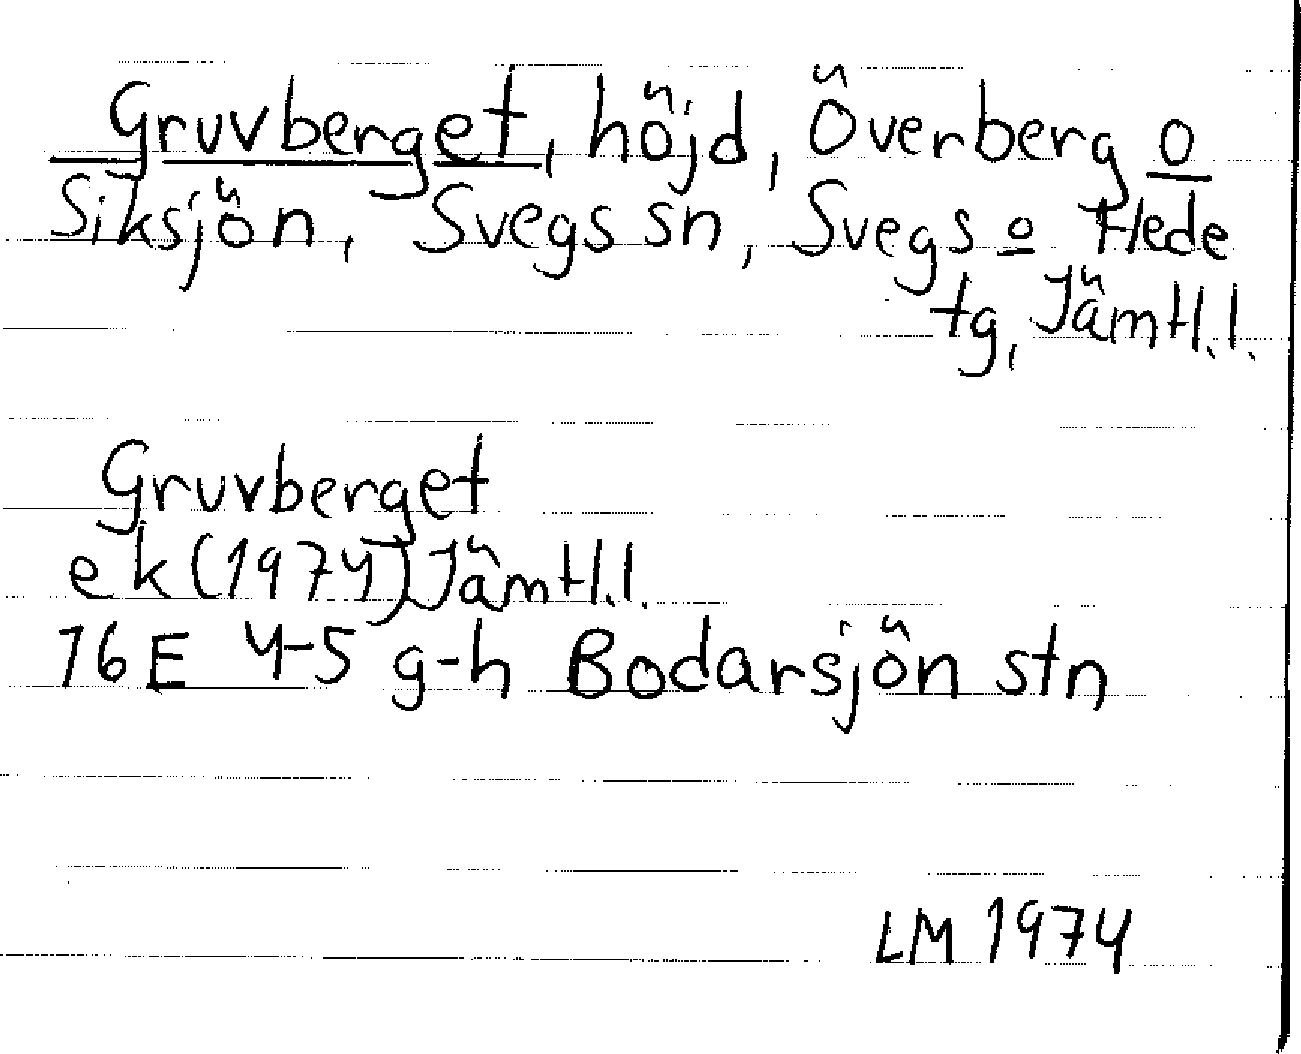 Gruvberget, höjd, Överberg o
Siksjön, Svegs sn, Svegs o Hede
tg, Jämtl.l.
Gruvberget
ek (1974) Jämtl.l.
16E 4-5 g-h Bodarsjön stn
LM 1974